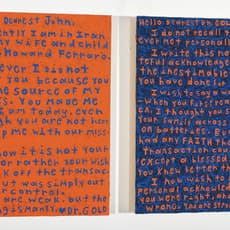 Dearest John,
ently I am in Iran
my wife and child
Howard Ferraro.
ever I is not
you because you
the source of my
s. You made me
I am today, even
gh you are not her
p me with our miss
ow it is not your
er rather your wish
k off the transac
ut was simply out
r control.
are weak. but the
g is manly. Mr. Gold
Hello Dearest Mr. Gol
I do not recall t
ever met personal
I write this no
teful acknowled
the inestimable
you have done fo
I wish to say a w
When you first rea
ca, I thought you s
your family across
on batteries. But
had any faith the
transaction coul
except a blessed
you knew better th
I now wish to m
personal acknowled
you were right, and
wrong. You are stro